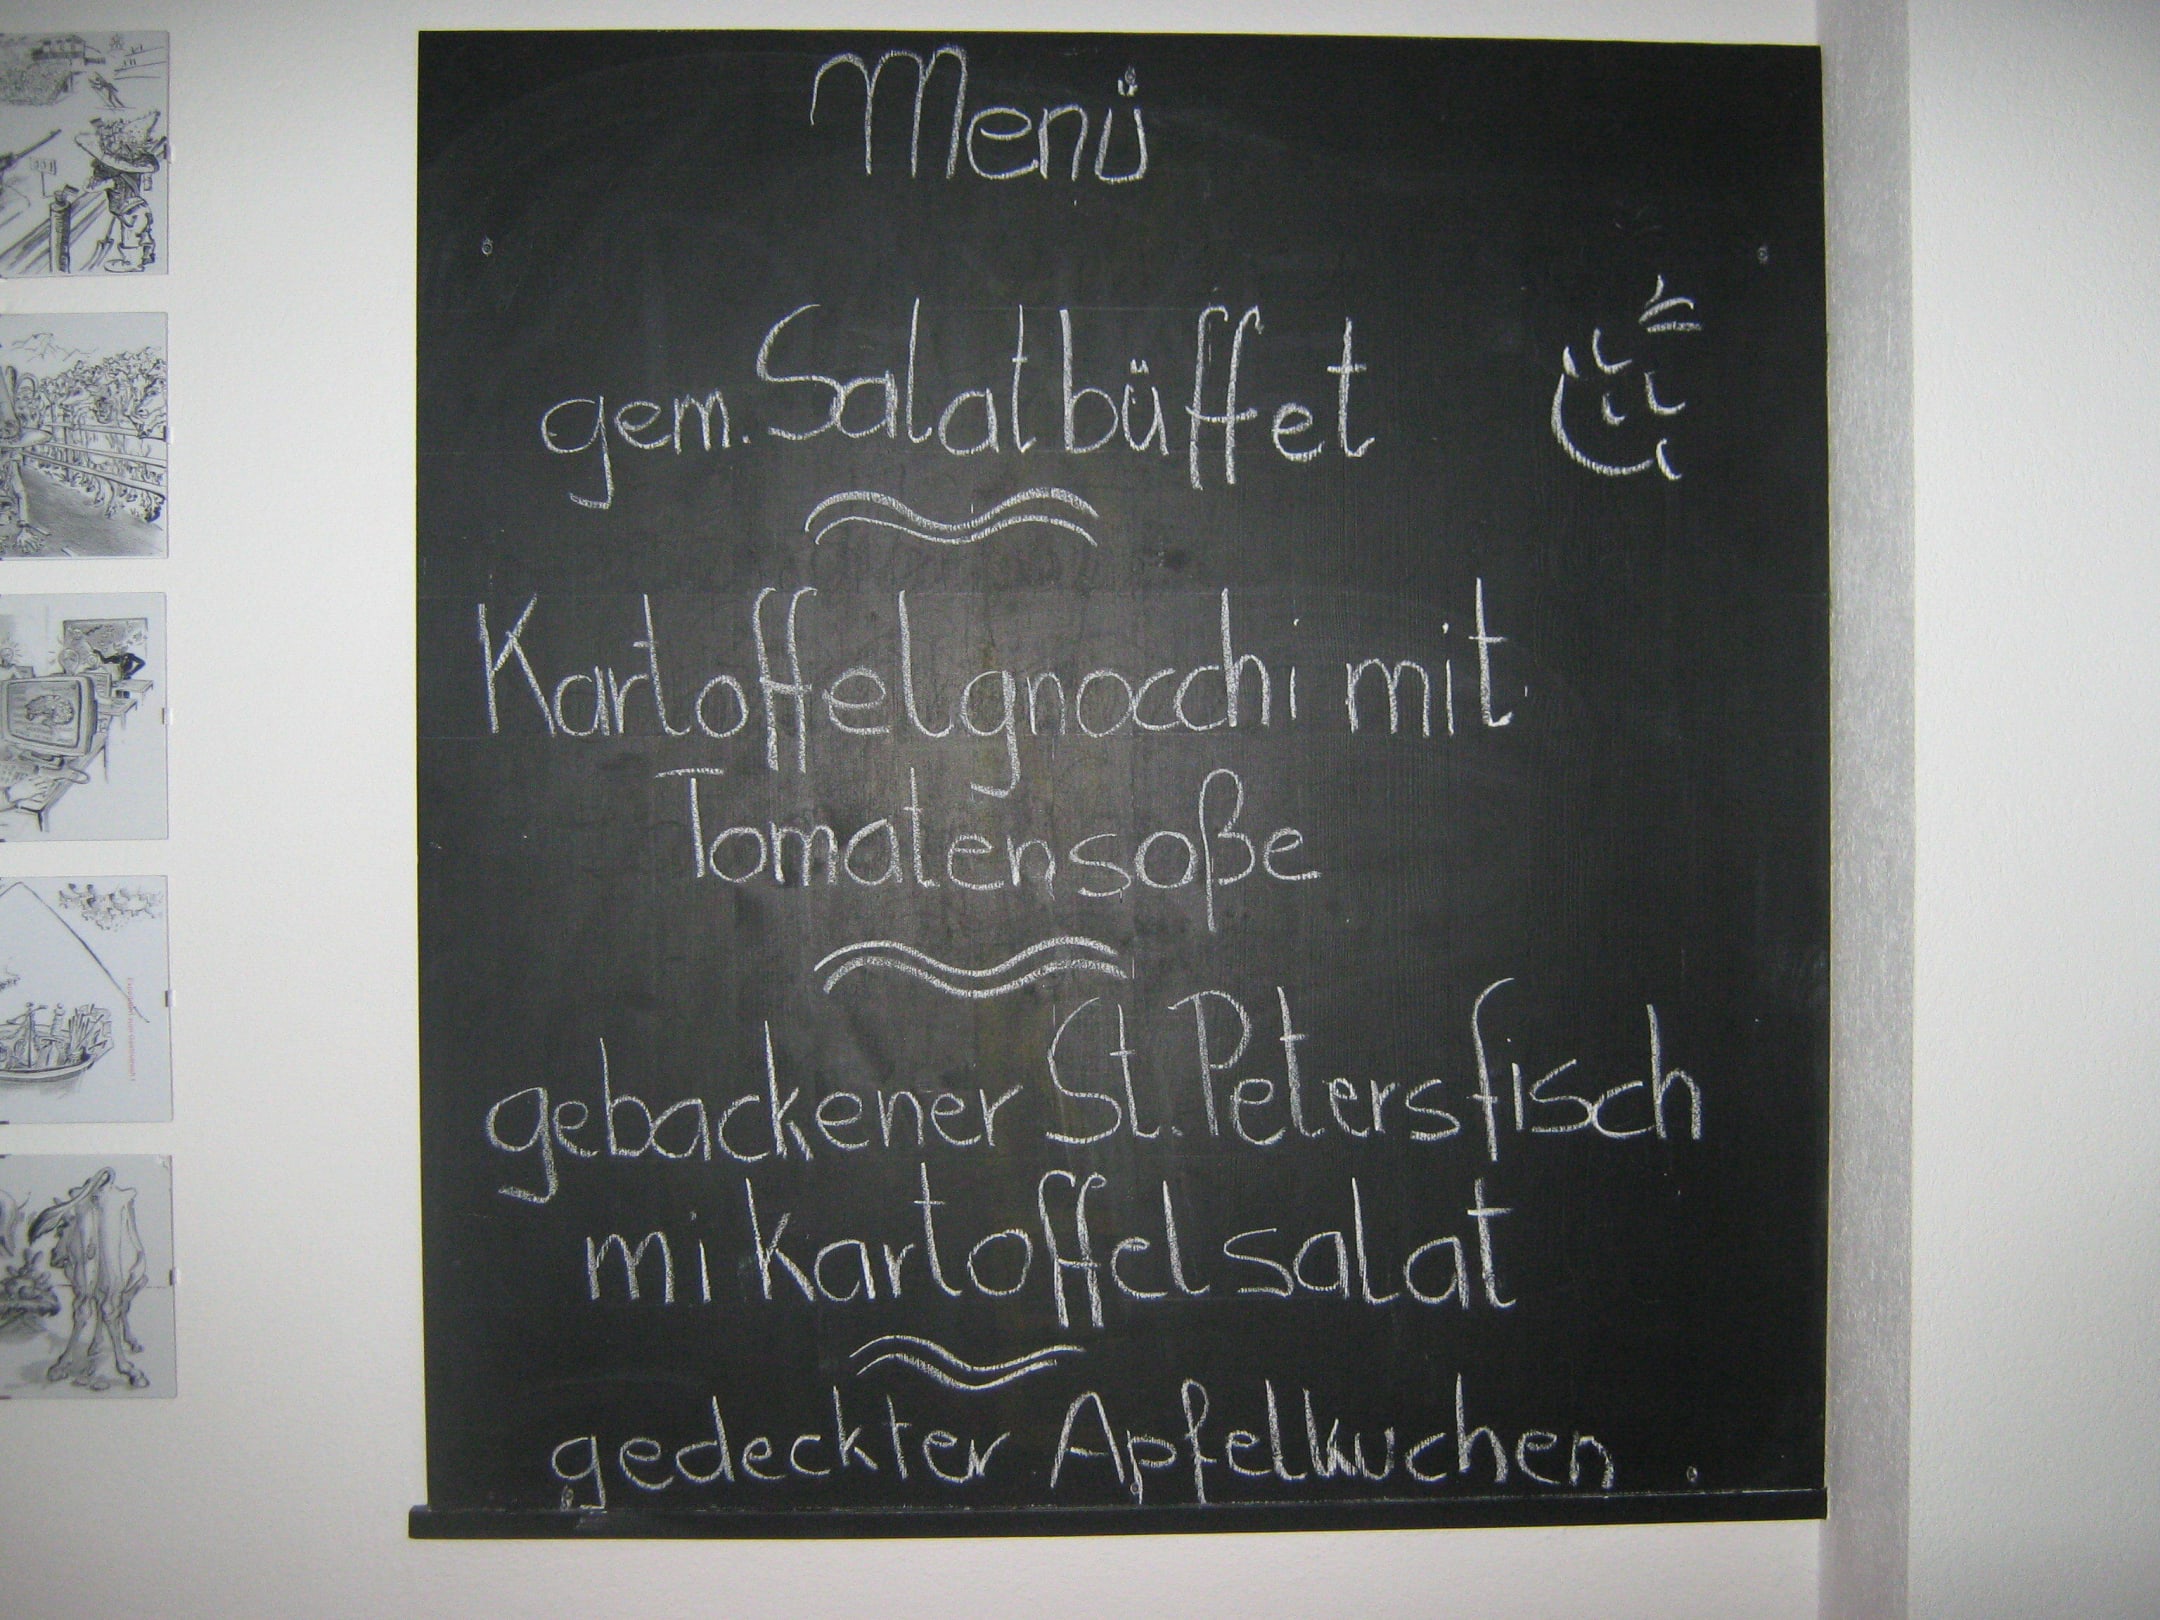 Menü
gem. Salatbüffet
Kartoffelgnocchi mit
Tomatensoße
gebackener St. Petersfisch
mi Kartoffelsalat
gedeckter Apfelkuchen